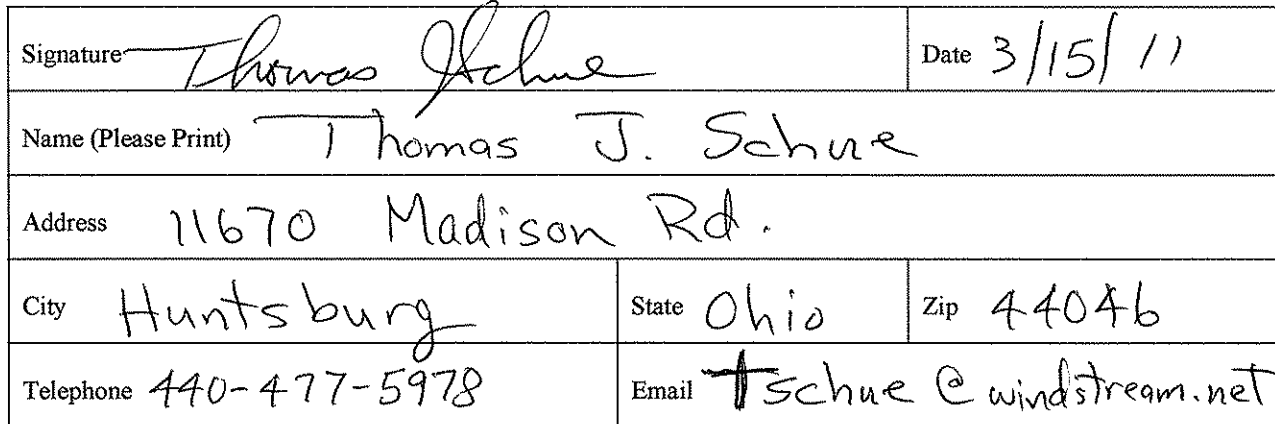 Signature Thomas J Schue Date 3/15/11
Name (Please Print) Thomas J. Schue
Address 11670 Madison Rd.
City Huntsburg State Ohio Zip 44046
Telephone 440-477-5978 Email tschue@windstream.net